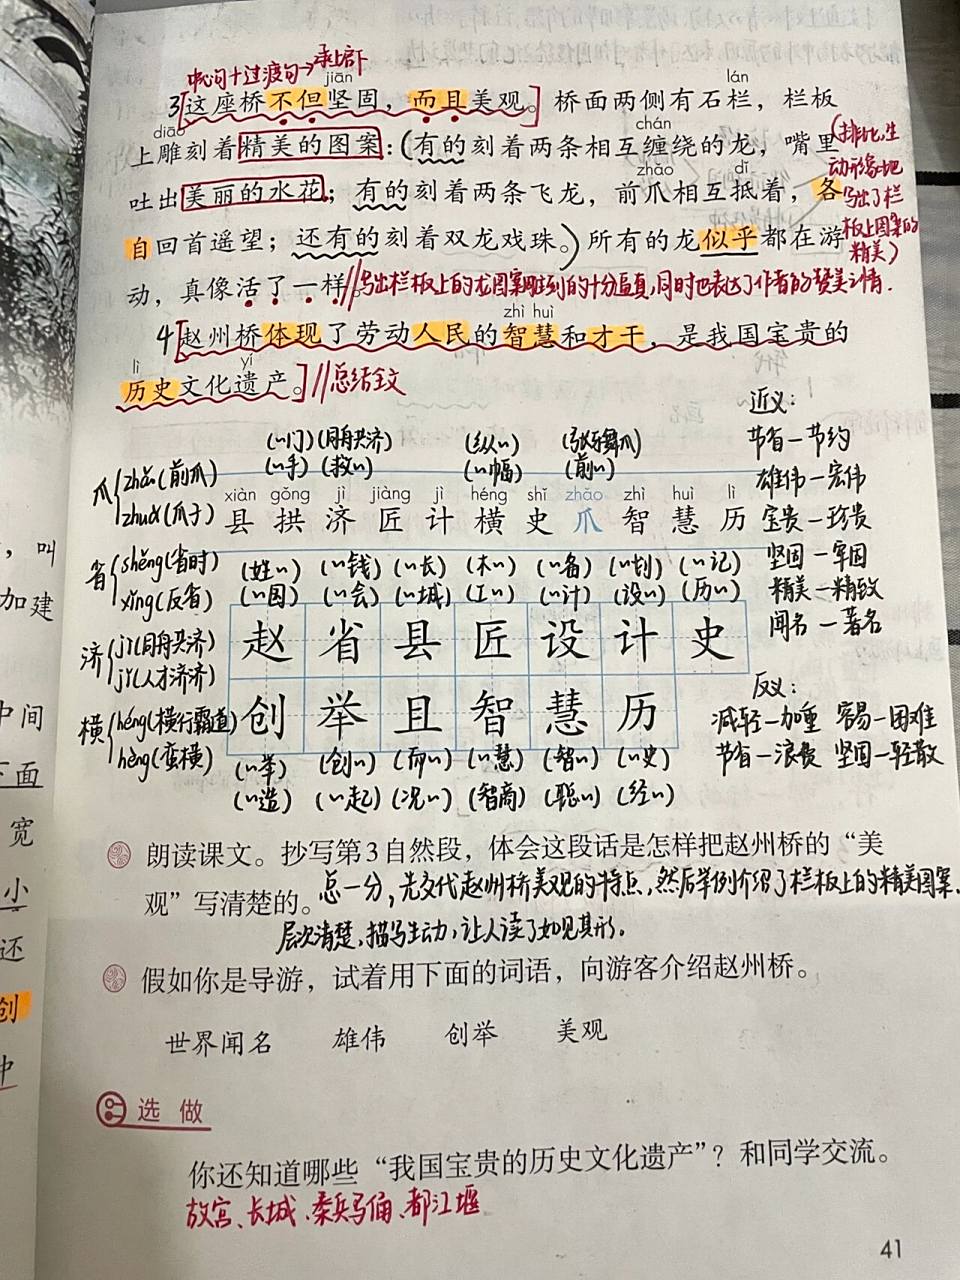 中心句+过渡句→承上启下
jiān lán
3[这座桥不但坚固，而且美观。] 桥面两侧有石栏，栏板
diāo chán
上雕刻着精美的图案:(有的刻着两条相互缠绕的龙，嘴里
zhǎo dǐ
吐出美丽的水花；有的刻着两条飞龙，前爪相互抵着，各
自回首遥望；还有的刻着双龙戏珠。)所有的龙似乎都在游
(排比,生
动形象地
写出了栏
板上图案的
精美)
动，真像活了一样。//写出栏板上的龙图案雕刻的十分逼真,同时也表达了作者的赞美之情.
zhì huì
4[赵州桥体现了劳动人民的智慧和才干，是我国宝贵的
lì yí
历史文化遗产。]//总结全文
近义:
节省—节约
雄伟—宏伟
宝贵—珍贵
坚固—牢固
精美—精致
闻名—著名
(〃门)(同舟共济) (纵〃) (张牙舞爪)
(〃手) (救〃) (〃幅) (前〃)
爪{zhǎo(前爪)
zhuǎ(爪子)
xiàn gǒng jì jiàng jì héng shǐ zhǎo zhì huì lì
县 拱 济 匠 计 横 史 爪 智 慧 历
省{shěng(省时)
xǐng(反省)
(姓〃) (〃钱) (〃长) (木〃) (〃备) (〃划) (〃记)
(〃国) (〃会) (〃城) (工〃) (〃计) (设〃) (历〃)
济{jì(同舟共济)
jǐ(人才济济)
赵 省 县 匠 设 计 史
横{héng(横行霸道)
hèng(蛮横)
创 举 且 智 慧 历
(〃举) (创〃) (而〃) (〃慧) (智〃) (〃史)
(〃造) (〃起) (况〃) (智商) (聪〃) (经〃)
反义:
减轻—加重 容易—困难
节省—浪费 坚固—轻散
朗读课文。抄写第3自然段，体会这段话是怎样把赵州桥的“美
观”写清楚的。总—分,先交代赵州桥美观的特点,然后举例介绍了栏板上的精美图案,
层次清楚,描写生动,让人读了如见其形.
假如你是导游，试着用下面的词语，向游客介绍赵州桥。
世界闻名 雄伟 创举 美观
选做
你还知道哪些“我国宝贵的历史文化遗产”？和同学交流。
故宫、长城、秦兵马俑、都江堰
41
，叫
加建
中间
下面
宽
小
还
创
中